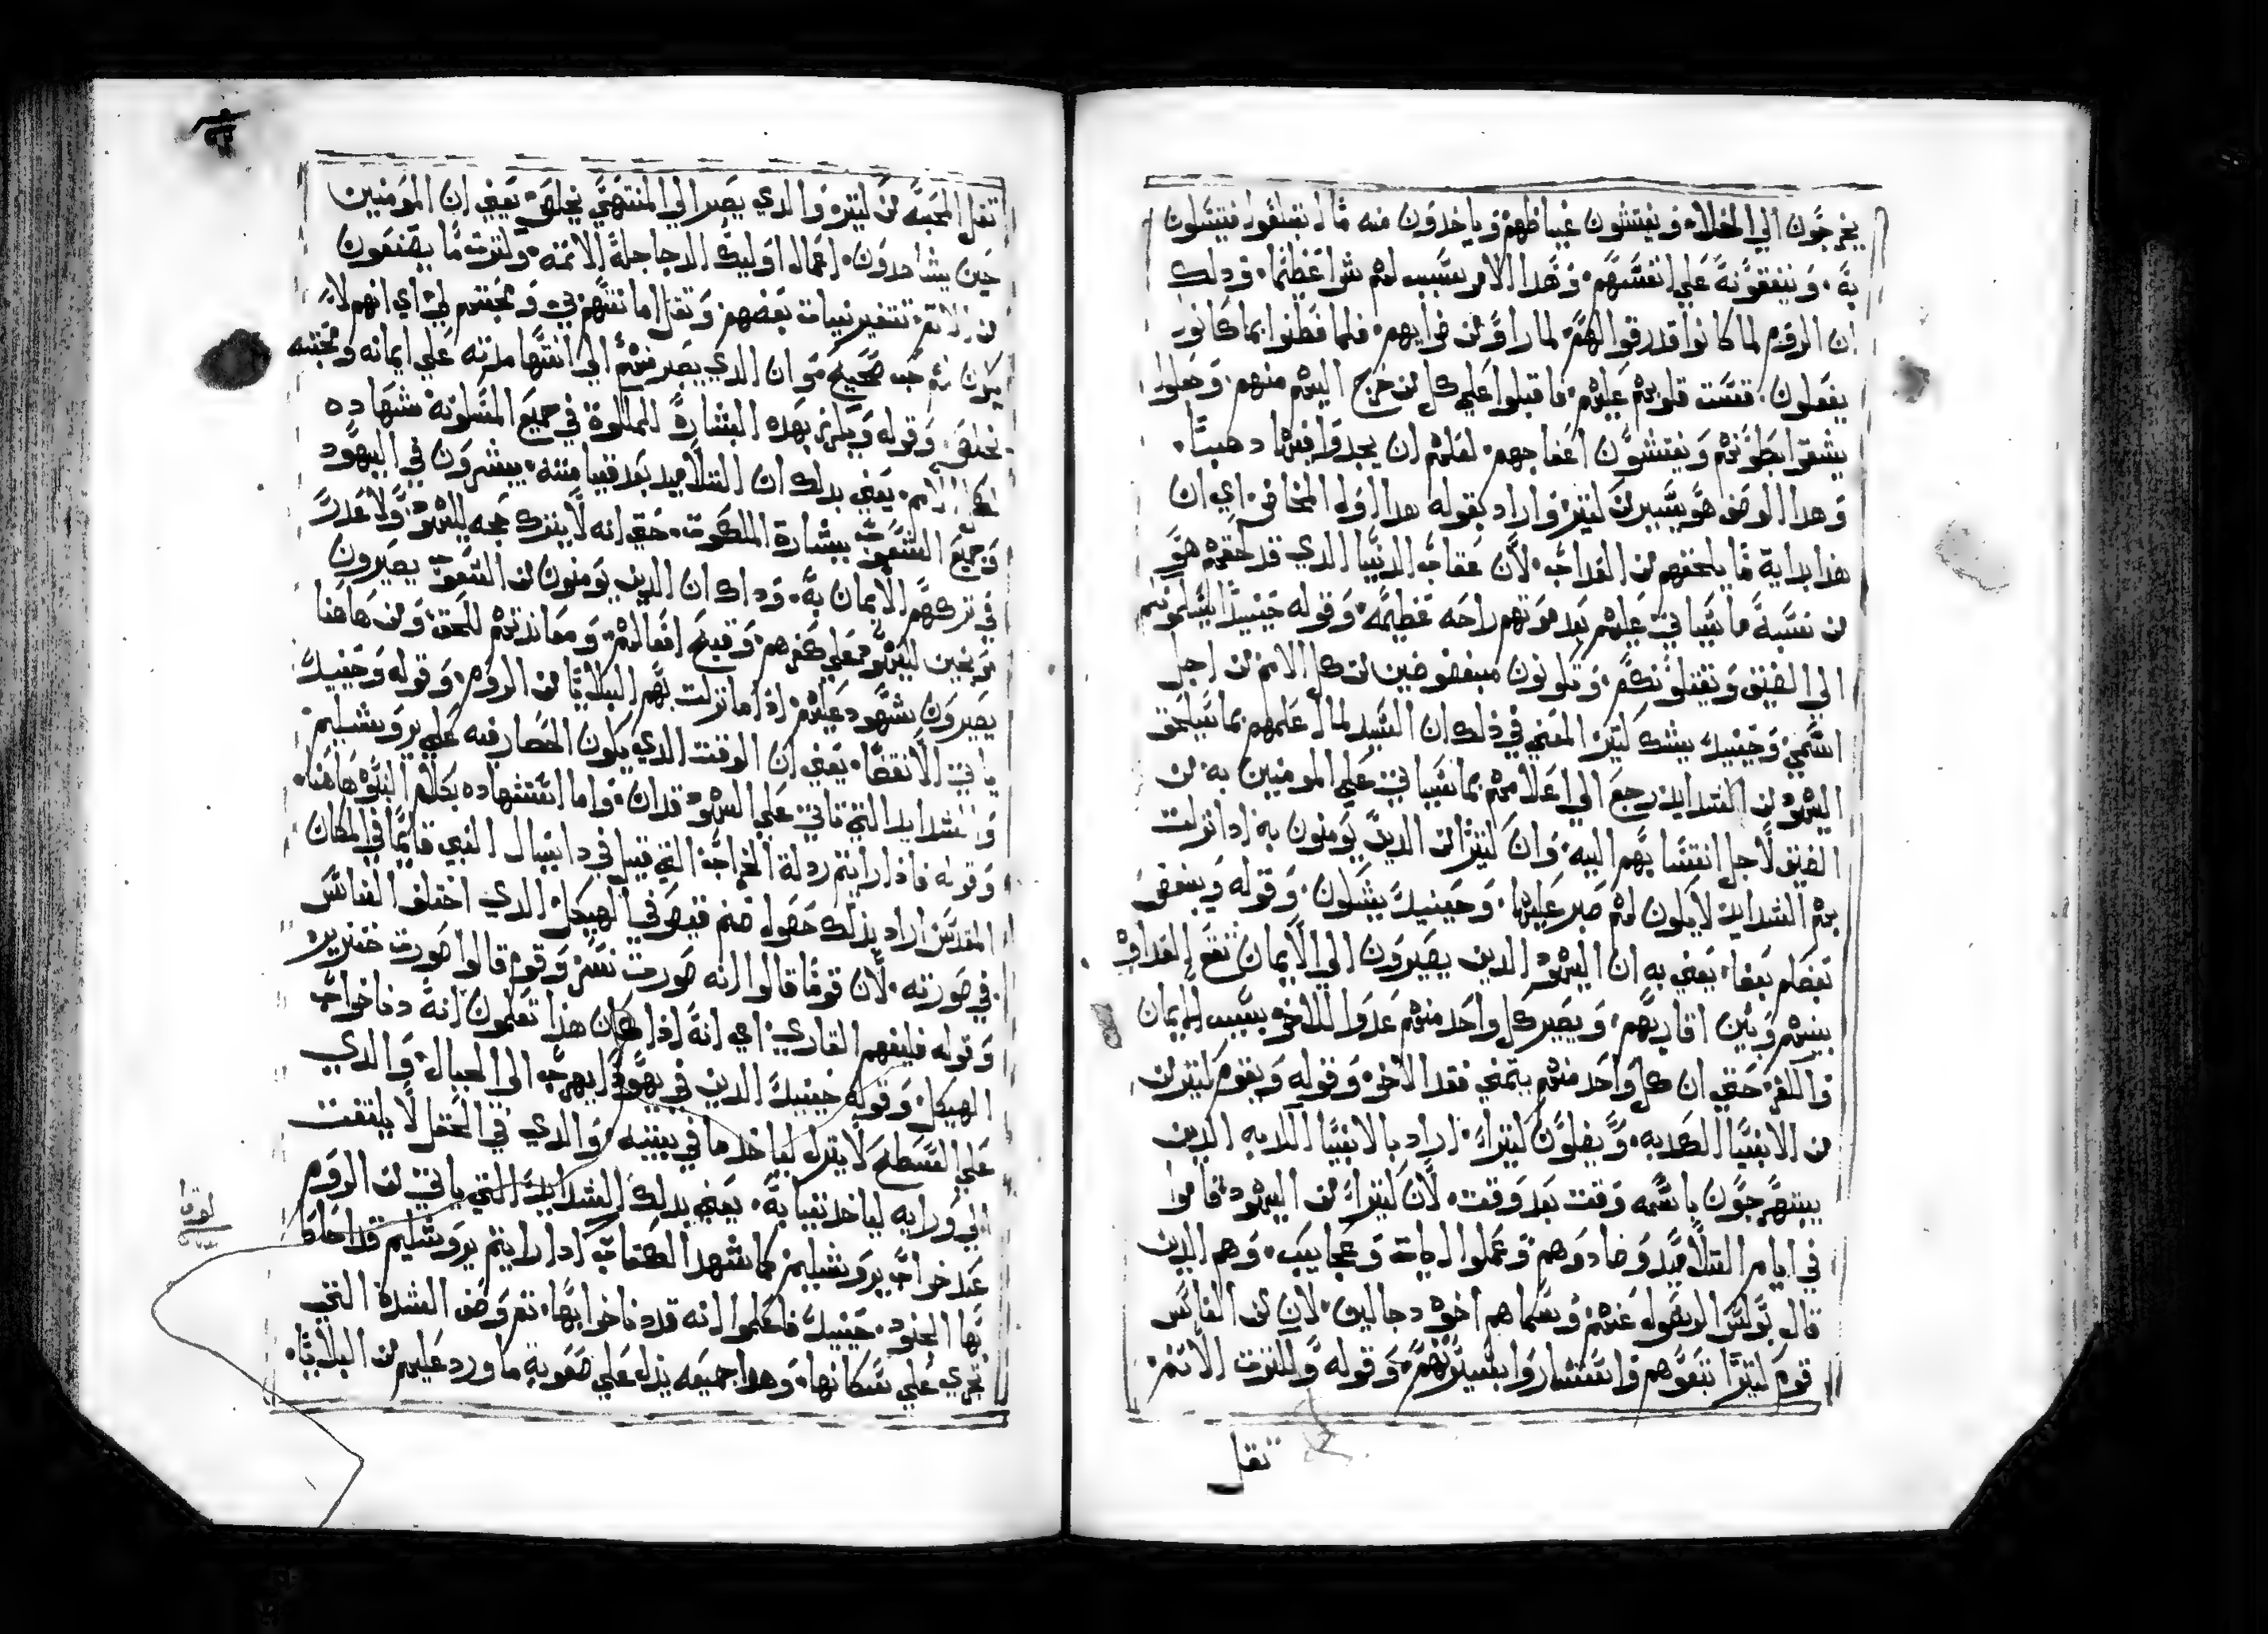 يخرجون الي الخلاء ويفتشون غياظهم وياخدون منه ما ابتلعوا فيتسلون
به، وينفقونه علي انفسهم، وهدا الامر سبب لهم شرا عظيما، ودلك
ان الروم لما كانوا قد رقوا لهم، لما راوا من خرابهم، فلما فطنوا بما كانوا
يفعلون، قست قلوبهم عليهم، فاقبلوا علي كل من خرج اليهم منهم، وجعلوا
يشقوا بطونهم ويفتشون اعفاجهم، لعلهم ان يجدوا فيها دهبا،
وهدا الوصف هو يسير من كثير واراد بقوله هدا اول المخاض، اي ان
هذا بداية ما يلحقهم من العداب، لان عقاب الدنيا الدي قد لحقهم هو
من نسبة ما سياتي عليهم بعد موتهم راحه عظيمه، وقوله حينيدا يسلمونكم
الي الضيق ويقتلونكم، وتكونون مبغوضين من كل الامم من اجل
اسمي، وحينيد يشك كثير المعني في ذلك ان السيد لما اعلمهم بما سيلحق
اليهود من الشدايد رجع الي اعلامهم بما سياتي علي المومنين به من
الضيق لاجل انتسابهم اليه، وان كثيرا من الدين يومنون به ادا نزلت
بهم الشدايد لا يكون لهم صبر عليها، وحينيد يشكون، وقوله ويبغض
بعضكم بعضا، يعني به ان اليهود الدين يصيرون الي الايمان تقع العداوه
بينهم وبين اقاربهم، ويصير كل واحد منهم عدوا للاخر بسبب الايمان
والكفر، حتي ان كل واحد منهم يتمني فقد الاخر، وقوله ويقوم كثير من
من الانبيا الكدبه، ويضلون كثيرا، اراد بالانبيا الكدبه الدين
يبتهرجون باسمه وقت بعد وقت، لان كثيرا من اليهود قاموا
في ايام التلاميد وضادوهم، وعملوا ايات وعجايب، وهم الدين
قال بولس الرسول عنهم، وسماهم اخوه دجالين، لان من الناس
قوم كثيرا تبعوهم واستشاروا بسيرتهم، وقوله ولكثرت الاتم،
تقل
تقل المحبه من كثير، والدي يصبر الي المنتهي يخلص، يعني ان المومنين
حين يشاهدون، اعمال اوليك الدجاجلة الاتمه، ولكثرت ما يصنعون
من الاتم، تتغير نيات بعضهم وتقل امانتهم في ومحبتهم لي، اي انهم لا
يكون لهم حب صحيح هو ان الدي يصبر منهم الي انتها مدته علي ايمانه ومحبته
يخلص، وقوله ويكرز بهده البشارة الملكوة في جميع المسكونه شهاده
لكل الامم، يعني بدلك ان التلاميد بعد قيامته، يبشرون في اليهود
وجميع الشعوب ببشارة الملكوت، حتي انه لا يترك حجه لليهود، ولا عدر
في تركهم الايمان به، وداك ان الدين يومنون من الشعوب يصيرون
موبخين لليهود علي كفرهم، وقبيح افعالهم، ومعاندتهم للحق، ومن هاهنا
يصيرون شهود عليهم، اذا ما نزلت بهم البلايا من الروم، وقوله وحينيد
ياتي الانقضا، يعني ان الوقت الدي يكون الحصار فيه علي يروشليم
والشدايد التي تاتي علي اليهود قد ان، واما استشهاده بكلام النبوه هاهنا،
وقوله فاذا رايتم ردلة الخراب، التي قيل في دانيال النبي قايما في المكان
المقدس اراد بذلك حصول صنم قيصر في الهيكل الدي اختلفوا الناس
في صورته، لان قوما قالوا انه صورت نسر، وقوم قالوا صورت خنزير
وقوله فليفهم القاري، اي انه اذا كان هذا تعلمون انه دنا خراب
الهيكل، وقوله حينيد الدين في يهودا يهرب الي الجبال، والدي
علي السطح لا ينزل لياخد ما في بيته، والدي في الحقل لا يلتفت
الي ورايه لياخد تيابه، يعني بدلك الشدايد التي ياتي من الروم
عند خراب يروشليم كما شهد الكتاب ادا رايتم يروشليم قد احاط
بها الجنود، حينيد فاعلموا انه قد دنا خرابها، تم وصف الشدة التي
تجري علي سكانها، وهدا جميعه يدل علي صعوبة ما ورد عليهم من البلايا،
لوقا